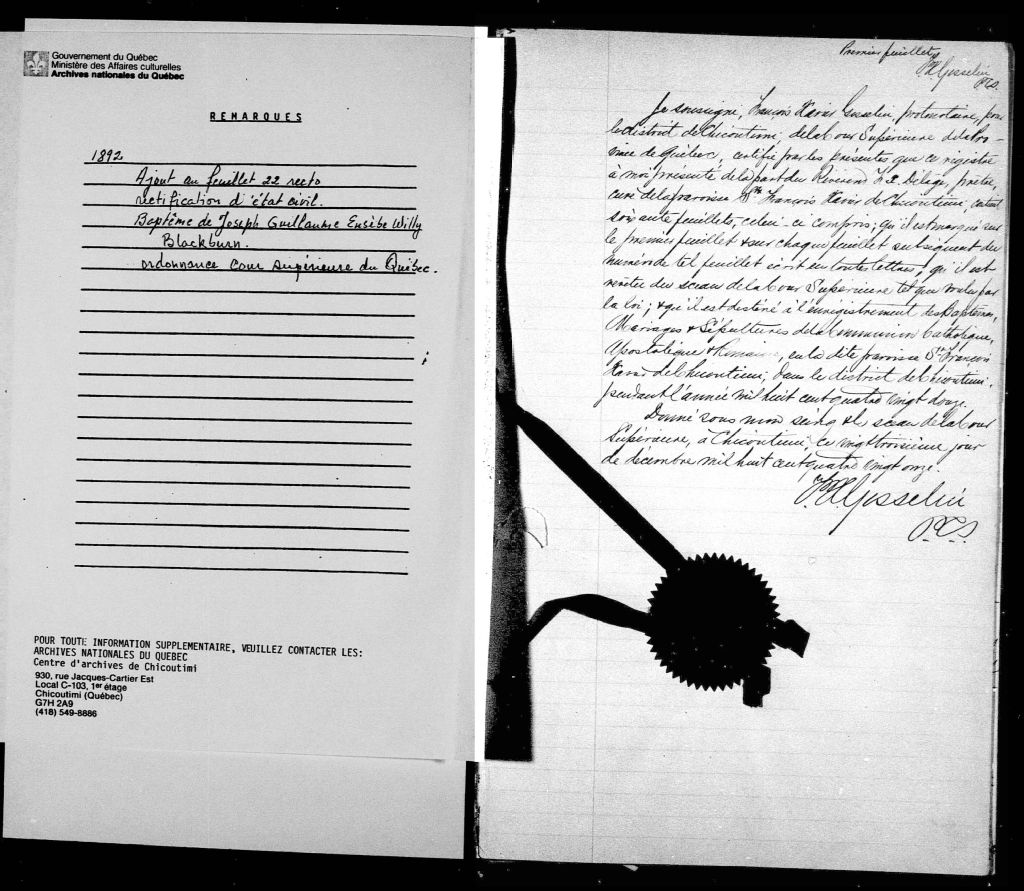 Gouvernement du Québec
Ministère des Affaires culturelles
Archives nationales du Québec
REMARQUES
1892
Ajout au feuillet 22 recto
rectification d'état civil.
Baptême de Joseph Guillaume Eusèbe Willy
Blackburn.
ordonnance cour supérieure du Québec.
POUR TOUTE INFORMATION SUPPLEMENTAIRE, VEUILLEZ CONTACTER LES:
ARCHIVES NATIONALES DU QUEBEC
Centre d'archives de Chicoutimi
930, rue Jacques-Cartier Est
Local C-103, 1er étage
Chicoutimi (Québec)
G7H 2A9
(418) 549-8886
Premier feuillet
Gosselin
P.C.S.
Je soussigné, François Xavier Gosselin, protonotaire, pour
le district de Chicoutimi, de la Cour Supérieure de la Pro-
vince de Québec, certifie par les présentes que ce registre
à moi présenté de la part du Révérend Delage, prêtre,
curé de la paroisse St François Xavier de Chicoutimi, contient
soixante feuillets, celui-ci compris; qu'il est marqué sur
le premier feuillet & sur chaque feuillet subséquent du
numéro de tel feuillet écrit en toutes lettres; qu'il est
revêtu du sceau de la Cour Supérieure tel que voulu par
la loi; & qu'il est destiné à l'enrégistrement des Baptêmes,
Mariages & Sépultures de la Communion Catholique,
Apostolique & Romaine, en la dite paroisse St François
Xavier de Chicoutimi, dans le district de Chicoutimi,
pendant l'année mil huit cent quatre vingt douze.
Donné sous mon seing & le sceau de la Cour
Supérieure, à Chicoutimi, ce vingt troisième jour
de décembre mil huit cent quatre vingt onze.
Gosselin
P.C.S.